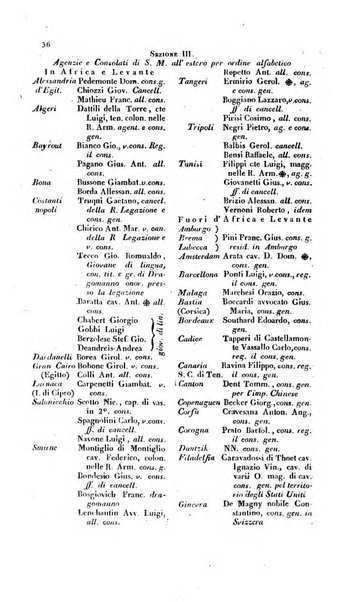 36
SEZIONE III.
Agenzie e Consolati di S. M. all'estero per ordine alfabetico
In Africa e Levante
Alessandria Pedemonte Dom. cons.
d'Egit. Chiozzi Giov. Cancell.
Mathieu Franc. all. cons.
Algeri Dattili della Torre, cte
Luigi, ten. colon. nelle
R. Arm. agent. e cons.
gen.
Bayrout Bianco Gio., v. cons. Reg.
il cons.
Pagano Gius. Ant. all.
cons.
Bona Bussone Giambat. v. cons.
Borda Allessan. all. cons.
Costanti Truqui Gaetano, cancell.
nopoli della R. Legazione e
cons. gen.
Chirico Ant. Mar. v. can.
della R Legazione e
v. cons. gen.
Tecco Gio. Romualdo,
Giovane di lingua,
con. tit. e gr. di Dra-
gomanno onor. pres-
so la legazione
Baratta cav. Ant. ✠ all
cons.
Chabert Giorgio
Golbbi Luigi
Berzolese Stef. Gio.
Deandreis-Andrea
giov. di lin.
Dardanelli Borea Girol. v. cons.
Gran Cairo Bohone Girol. v. cons.
(Egitto) Colli Ant. all. cons.
Larnaca Carpenetti Giambat. v.
(I. di Cipro) cons.
Salonicchio Scotto Nic., cap. di vas.
in 2º. cons.
Spagnolini Carlo,
ff. di cancell.
Navone Luigi, all. cons.
Smirne Montiglio di Montiglio
cav. Federico, colon.
nelle R. Arm. cons. g.
Bondesio Gius. v. cons.
ff. di cancell.
Bosgiovich Franc. dra-
gomanno
Lenchantin Avv. Luigi,
all. cons.
Repetto Ant. all. cons.
Tangeri Ermirio Gerol. ✠ ag.
e cons. gen.
Boggiano Lazzaro, v. cons.
ff. di cancell.
Pirisi Cosimo, all. cons.
Tripoli Negri Pietro, ag. e cons.
gen.
Balbis Gerol. cancell.
Bensi Raffaele, all. cons.
Tunisi Filippi cte Luigi, magg.
nelle R. Arm. ✠, ag. e
cons. gen.
Giovanetti Gius., v. cons.
ff. di cancell.
Brizio Alessan. all. cons.
Vernoni Roberto, idem
Fuori d'Africa e Levante
Amburgo )
Brema ) Pini Franc. Gius. cons. g.
Lubecca ) resid. in Amburgo
Amsterdam Arata cav. D. Dom. ✠,
cons. gen.
Barcellona Ponti Luigi, v. cons., reg.
il cons. gen.
Malaga Marchesi Orazio, cons.
Bastia Boccardi avvocato Gius.
(Corsica) Maria, cons. gen.
Bordeaux Southard Edoardo, cons.
gen.
Cadice Tapperi di Castellamon-
te Vassallo Carlo, cons.
reg. il cons. gen.
Canaria Ravina Filippo, cons. reg.
S. C. di Ten. il cons. gen.
Canton Dent Tomm., cons. gen.
per l'imp. Chinese
Copenaguen Becker Giorg., cons. gen.
Corfù Cravesana Anton. Ang.,
cons. gen.
Corogna Prato Bartol., cons. reg.
il cons. gen.
Dantzik NN. cons. gen.
Filadelfia Caravadossi di Thoet cav.
Ignazio Vin., cav. di
vari O. d. M. e gius.,
cons. gen. pel territo-
rio degli Stati Uniti
Ginevra De Magny nobile Con-
stantino, cons. gen. in
Svizzera